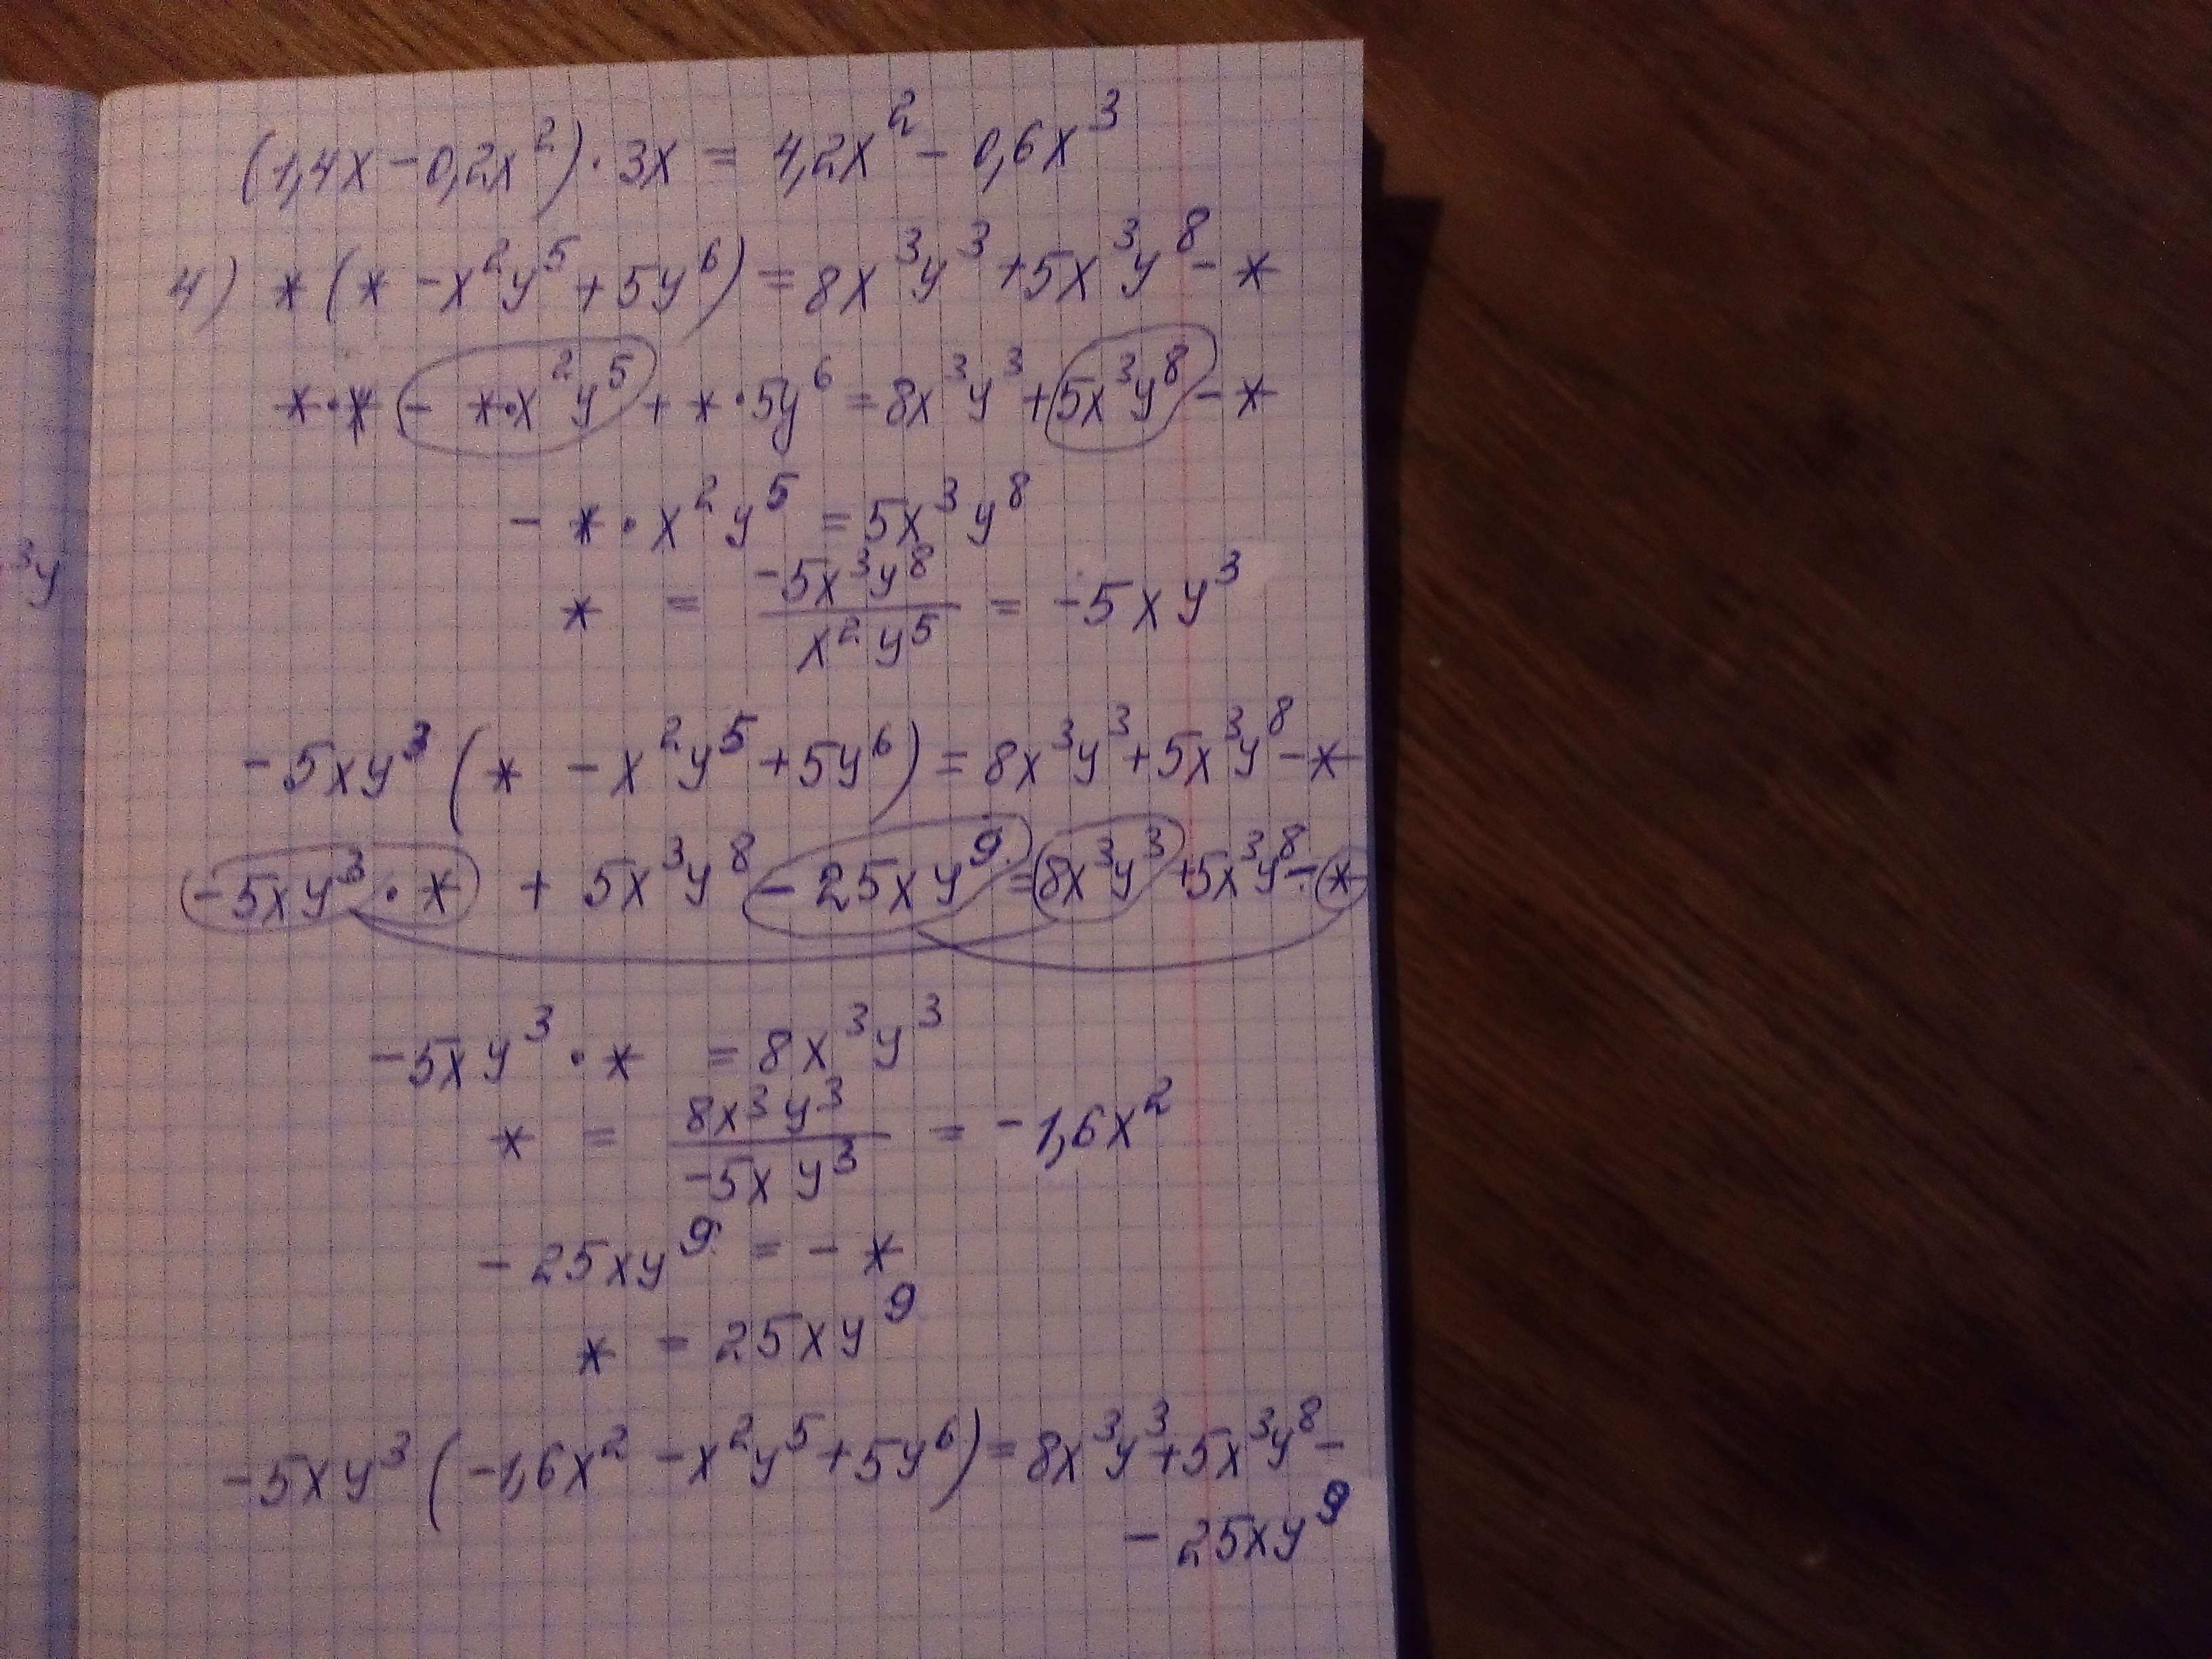 (1,4x - 0,2x²) · 3x = 4,2x² - 0,6x³
4) * (* - x²y⁵ + 5y⁶) = 8x³y³ + 5x³y⁸ - *
* · * - * · x²y⁵ + * · 5y⁶ = 8x³y³ + 5x³y⁸ - *
- * · x²y⁵ = 5x³y⁸
³y
* = -5x³y⁸ / x²y⁵ = -5xy³
-5xy³ (* - x²y⁵ + 5y⁶) = 8x³y³ + 5x³y⁸ - *
-5xy³ · * + 5x³y⁸ - 25xy⁹ = 8x³y³ + 5x³y⁸ - *
-5xy³ · * = 8x³y³
* = 8x³y³ / -5xy³ = -1,6x²
-25xy⁹ = - *
* = 25xy⁹
-5xy³ (-1,6x² - x²y⁵ + 5y⁶) = 8x³y³ + 5x³y⁸ -
- 25xy⁹